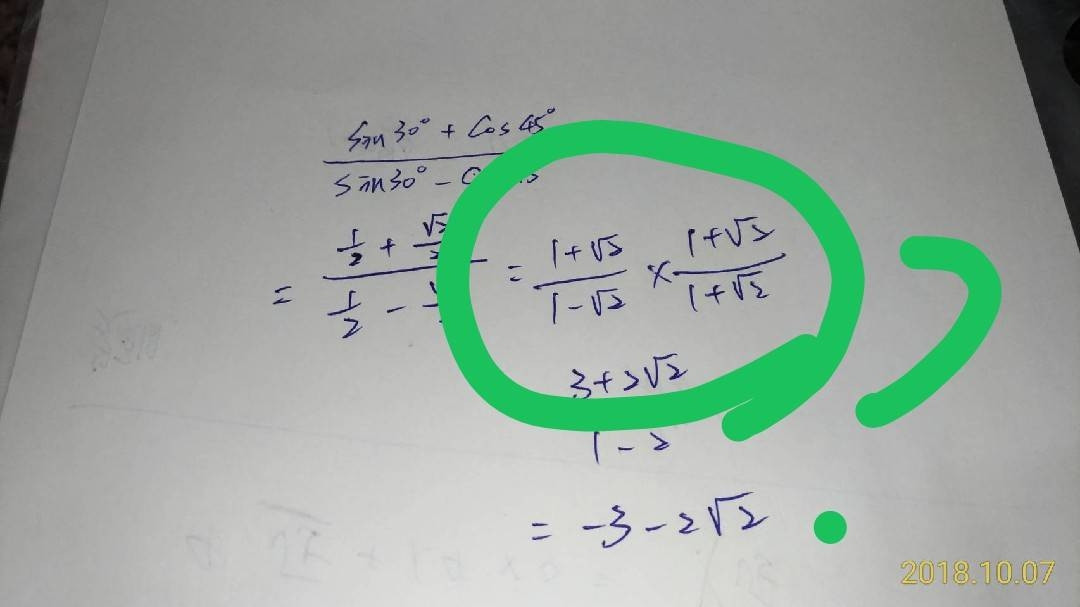 sin30° + cos45°
sin30° -
= 1/2 + √2/2
1/2 -
= 1+√2/1-√2 × 1+√2/1+√2
3+2√2
1-2
= -3-2√2
2018.10.07